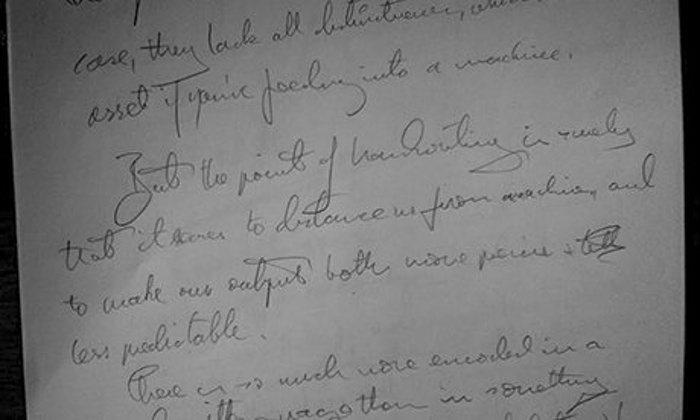 case, they lack all distinctness,
asset if you're feeding into a machine.
But the point of handwriting is surely
that it serves to distance us from machines, and
to make our output both more precise &
less predictable.
There is so much more encoded in a
than in something